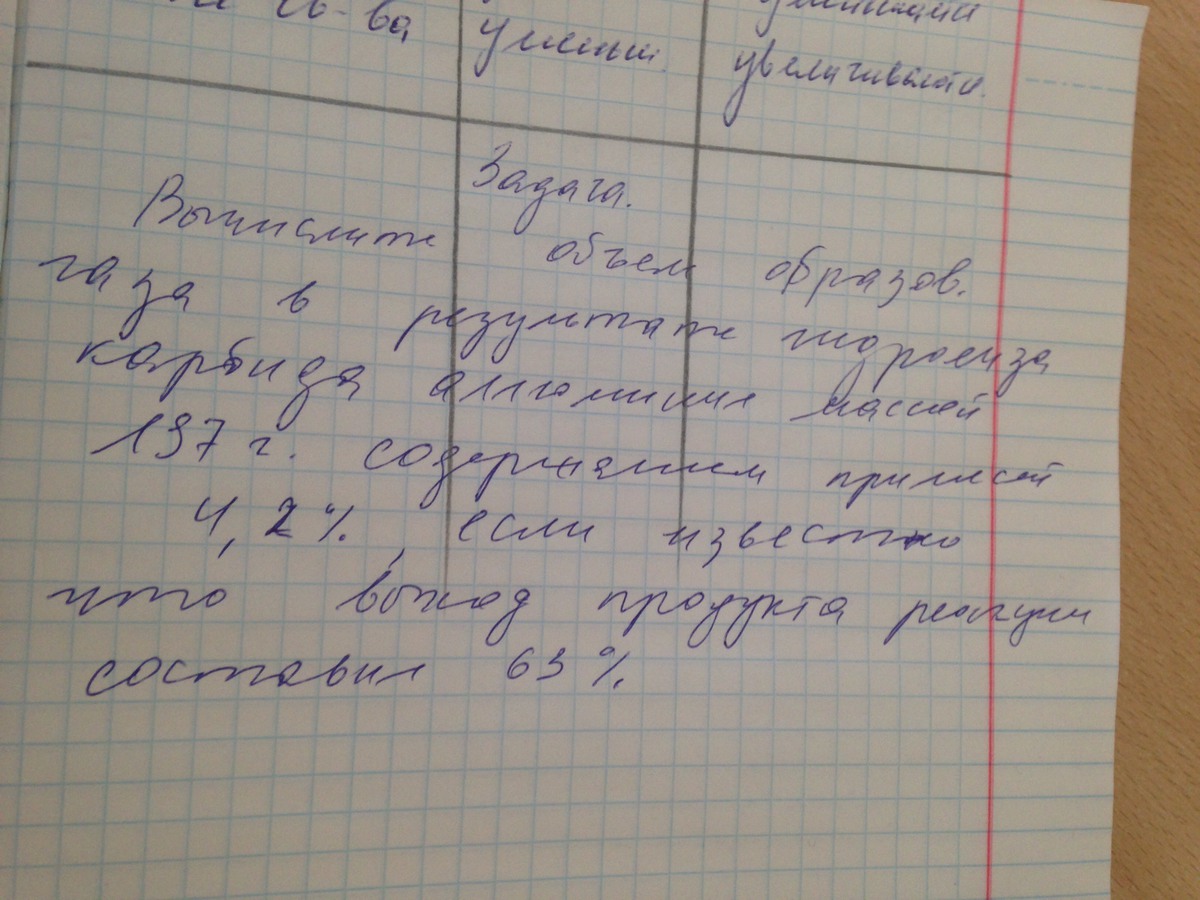 ув-ва уменьш. увеличивается.
Задача.
Вычислите объем образов.
газа в результате гидролиза
карбида алюминия массой
197 г. содержанием примесей
4,2%, если известно
что выход продукта реакции
составил 63%.